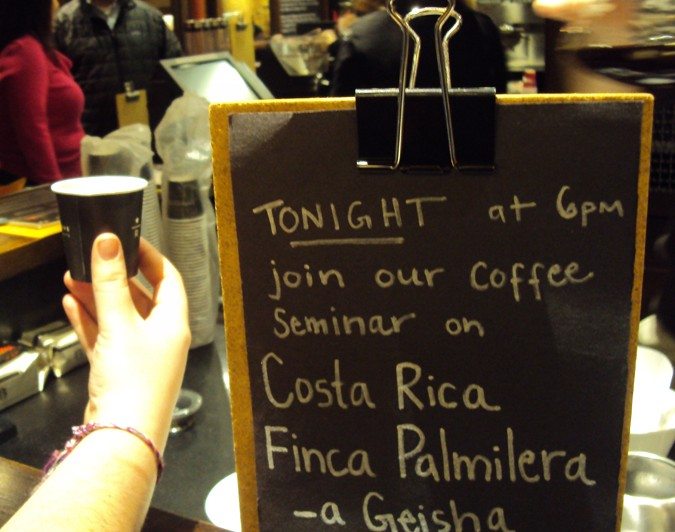 TONIGHT at 6pm
join our coffee
seminar on
Costa Rica
Finca Palmilera
-a Geisha